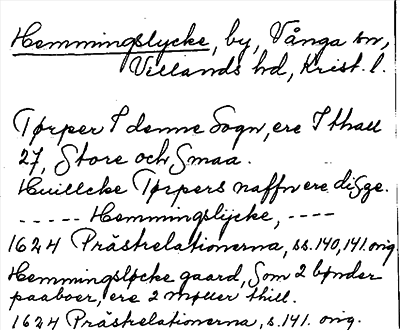 Hemmingslycke, by, Vånga sn,
Villands hd, Krist. l.
Tørper I denne Sogn, ere I thall
27, Store och Smaa.
Huillcke Tørpers naffn ere disse.
----- Hemmingslÿcke, ----
1624 Prästrelationerna, ss. 140, 141. orig.
Hemmingsløcke gaard, Som 2 bønder
paaboer, ere 2 møller thill.
1624 Prästrelationerna, s. 141. orig.